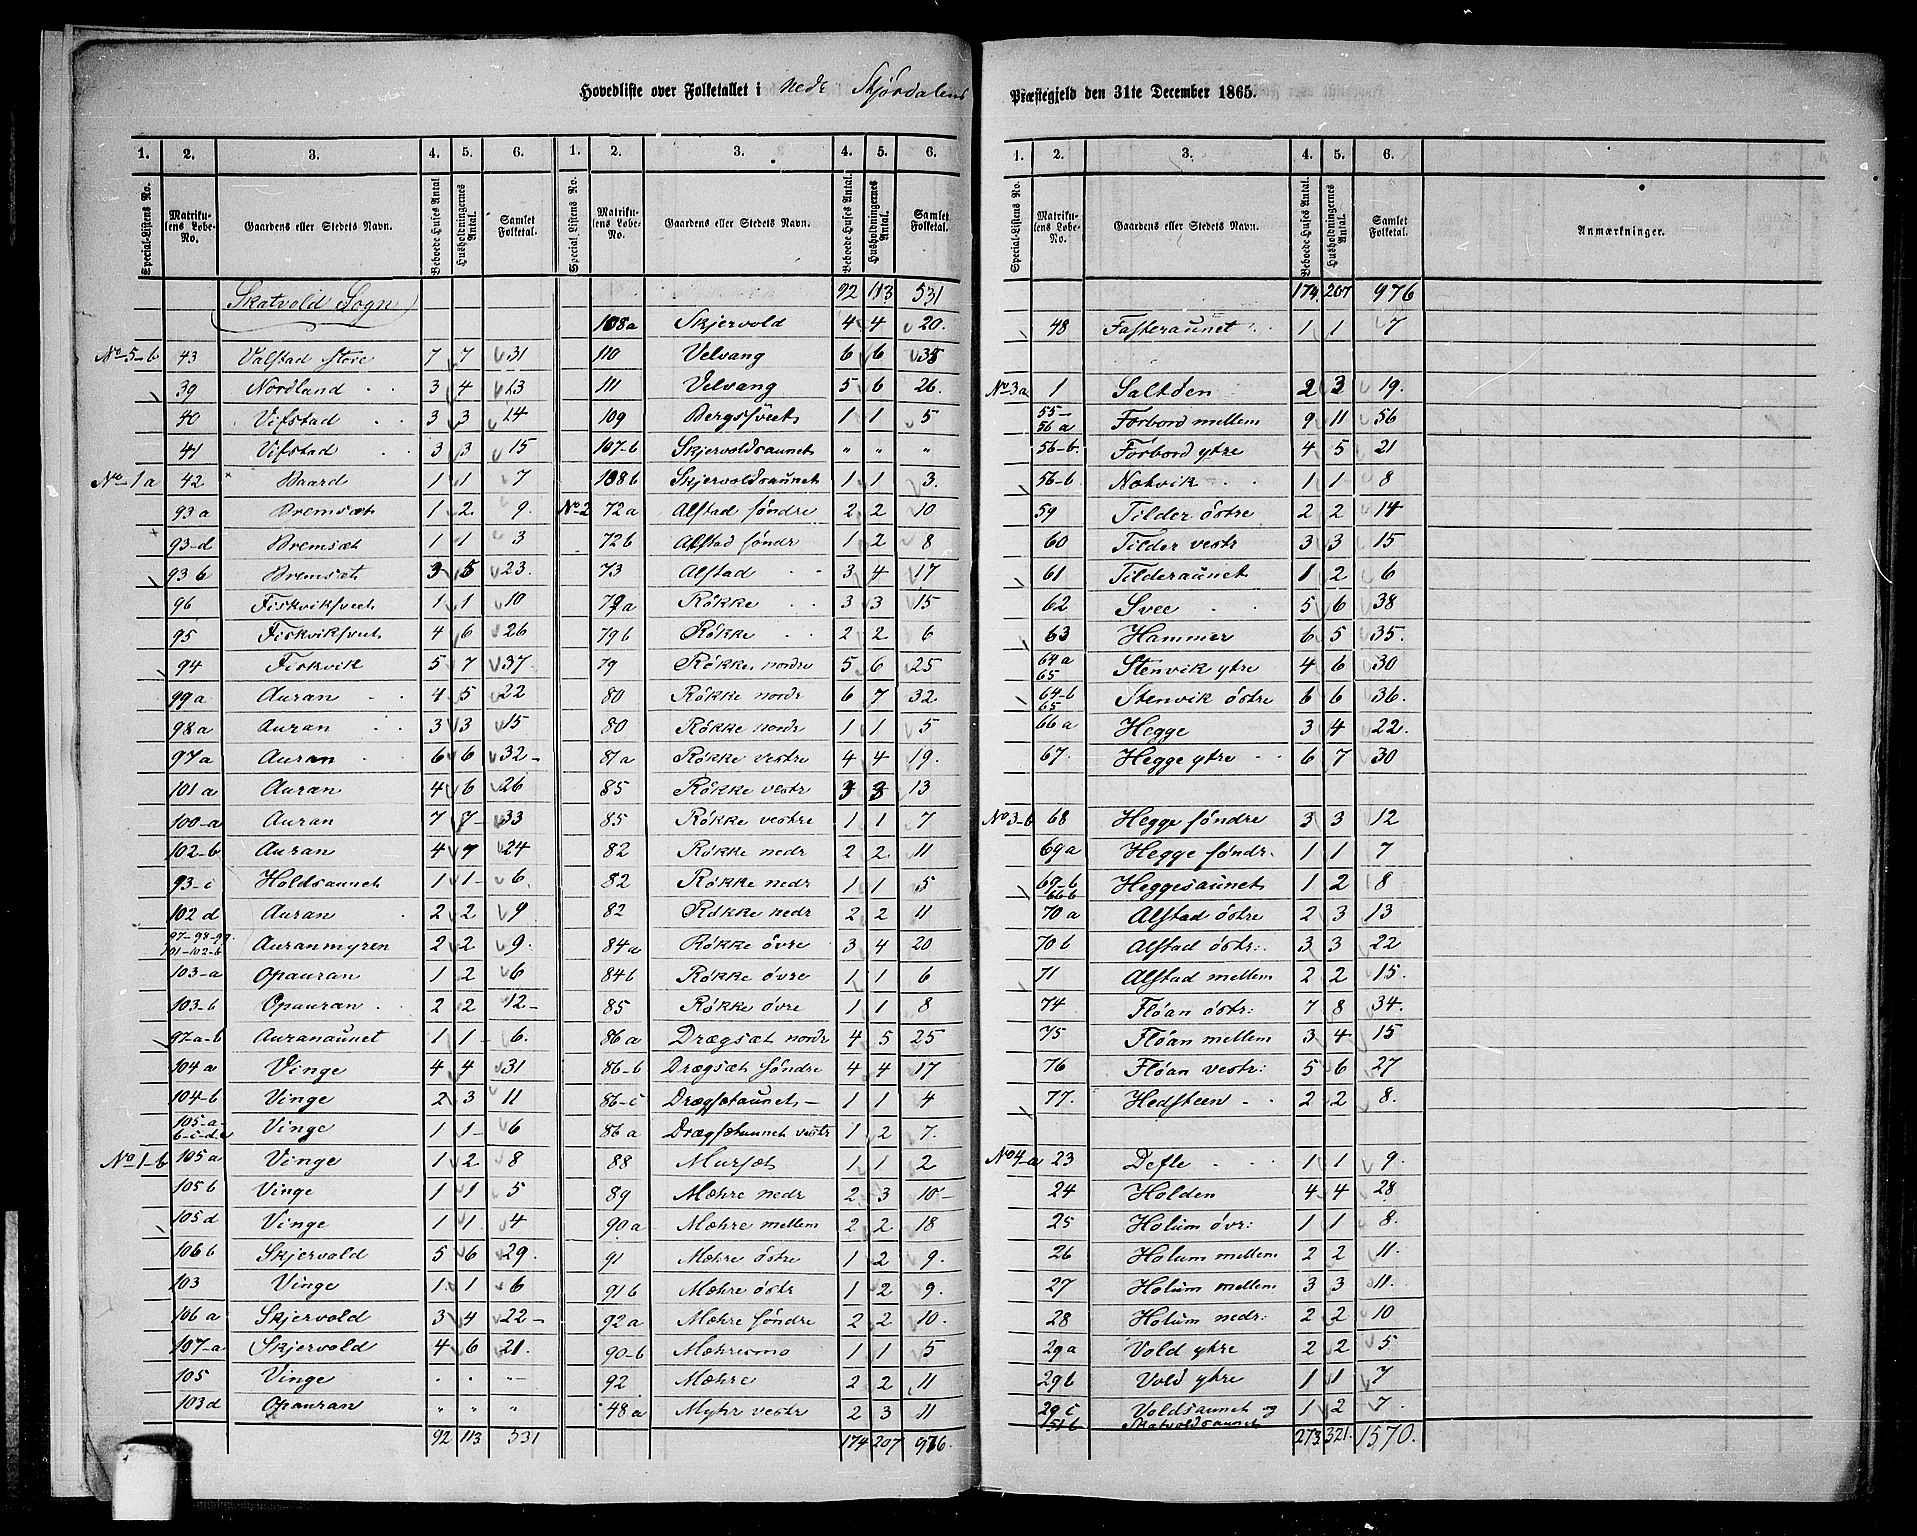 Hovedliste over Folketallet i nedr Stjørdalens Præstegjeld den 31te December 1865.
1. 2. 3. 4. 5. 6.
Special-Listens No. Matrikulens Løbe-No. Gaardens eller Stedets Navn. Beboede Huses Antal. Husholdningernes Antal. Samlet Folketal.
Skatvold Sogn
No 5-b 43 Valstad store 7 7 31
39 Nordland 3 4 13
40 Vifstad 3 3 14
41 Vifstad 3 3 15
No 1a 42 Baard 1 1 7
93a Bremsæt 1 2 9.
93-d Bremsæt 1 1 3
93b Bremsæt 3 5 23.
96 Fiskvikfvet 1 1 10
95 Fiskvikfvet 4 6 26
94 Fiskvik 5 7 37.
99a Auran 4 5 22
98a Auran 3 3 15
97a Auran 6 6 32
101a Auran 4 6 26
100-a Auran 7 7 33
102-b Auran 4 7 24
93-c Holdsaunet 1 1 6.
102d Auran 2 2 9
97-98-99. 101-102-b Auranmyren 2 2 9.
103-a Opauran 1 2 6
103-b Opauran 2 2 12
97-a-b Auranaunet 1 1 6.
104a Vinge 4 4 31
104-b Vinge 2 3 11
105-a b-c-d-e Vinge 1 1 6
No 1-b 105a Vinge 1 2 8
105b Vinge 1 1 5
105d Vinge 1 1 4
106b Skjervold 5 6 29.
103 Vinge 1 1 6
106a Skjervold 3 4 22
107-a Skjervold 4 6 21.
105 Vinge " " "
103d Opauran " " "
92 113 531
1. 2. 3. 4. 5. 6.
Special Listens No. Matrikulens Løbe-No. Gaardens eller Stedets Navn. Beboede Huses Antal. Husholdningernes Antal. Samlet Folketal.
92 113 531
108a Skjervold 4 4 20.
110 Velvang 6 6 38
111 Velvang 5 6 26.
109 Bergsfvet 1 1 5
107-b Skjervoldsaunet " " "
108b Skjervoldsaunet 1 1 3.
No 2 72a Alstad søndre 2 2 10
72b Alstad søndr 1 2 8
73 Alstad 3 4 17
79a Røkke 3 3 15
79b Røkke 2 2 6
79 Røkke nordre 5 6 25
80 Røkke nordr 6 7 32.
80 Røkke nordr 1 1 5
81a Røkke vestre 4 4 19.
85 Røkke vestr 3 3 13
85 Røkke vestre 1 1 7
82 Røkke nedr 2 2 11
82 Røkke nedr 1 1 5
82 Røkke nedr 2 2 11
84a Røkke øvre 3 4 20
84b Røkke øvre 1 1 6
85 Røkke øvre 1 1 8
86a Drægsæt nordr 4 5 25
86-b Drægsæt søndre 4 4 17
86-c Drægsætaunet 1 1 4
86a Drægsætaunet vestr 1 2 7.
88 Mursæt 1 1 2
89 Mæhre nedr 2 3 10
90a Mæhre mellem 2 2 18
91 Mæhre østre 1 2 9.
91b Mæhre østr 1 2 9.
92a Mæhre søndre 2 2 10.
90-b Mæhresmo 1 1 5
92 Mæhre 2 2 11
48a Myhr vestr 2 3 11
174 207 976.
1. 2. 3. 4. 5. 6.
Special-Listens No. Matrikulens Løbe-No. Gaardens eller Stedets Navn. Beboede Huses Antal. Husholdningernes Antal. Samlet Folketal. Anmærkninger.
174 207 976
48 Fasteraunet 1 1 7
No 3a 1 Saltøen 2 3 19.
55-56a Forbord mellem 9 11 56
56-b. Forbord ytre 4 5 21
56-b Nøtvik 1 1 8
59 Tilder østre 2 2 14
60 Tilder vestr 3 3 15
61 Tilderaunet 1 2 6
62 Svee 5 6 38
63 Hammer 6 5 35.
64a 65 Stenvik ytre 4 6 30
64-b 65 Stenvik østre 6 6 36.
66a Hegge 3 4 22.
67. Hegge ytre 6 7 30
No 3-b 68 Hegge søndre 3 3 12
69a Hegge søndr. 1 1 7
69-b 66b Heggesaunet 1 2 8
70a Alstad østre 2 3 13
70b Alstad østr: 3 3 22
71 Alstad mellem 2 2 15.
74 Fløan østr: 7 8 34.
75 Fløan mellem 3 4 15
76 Fløan vestr: 5 6 27
77. Hedsteen 2 2 8.
No 4-a 23 Defle 1 1 9.
24 Holden 4 4 28
25 Holum øvr: 1 1 8.
26 Holum mellem 2 2 11.
27 Holum mellem 3 3 11.
28 Holum nedr: 2 2 10
29a Vold ytre 2 2 5
29b Vold ytre 1 1 7
29c Voldsaunet og 1 2 7.
151b Skatvoldsaunet
273 321. 1570.